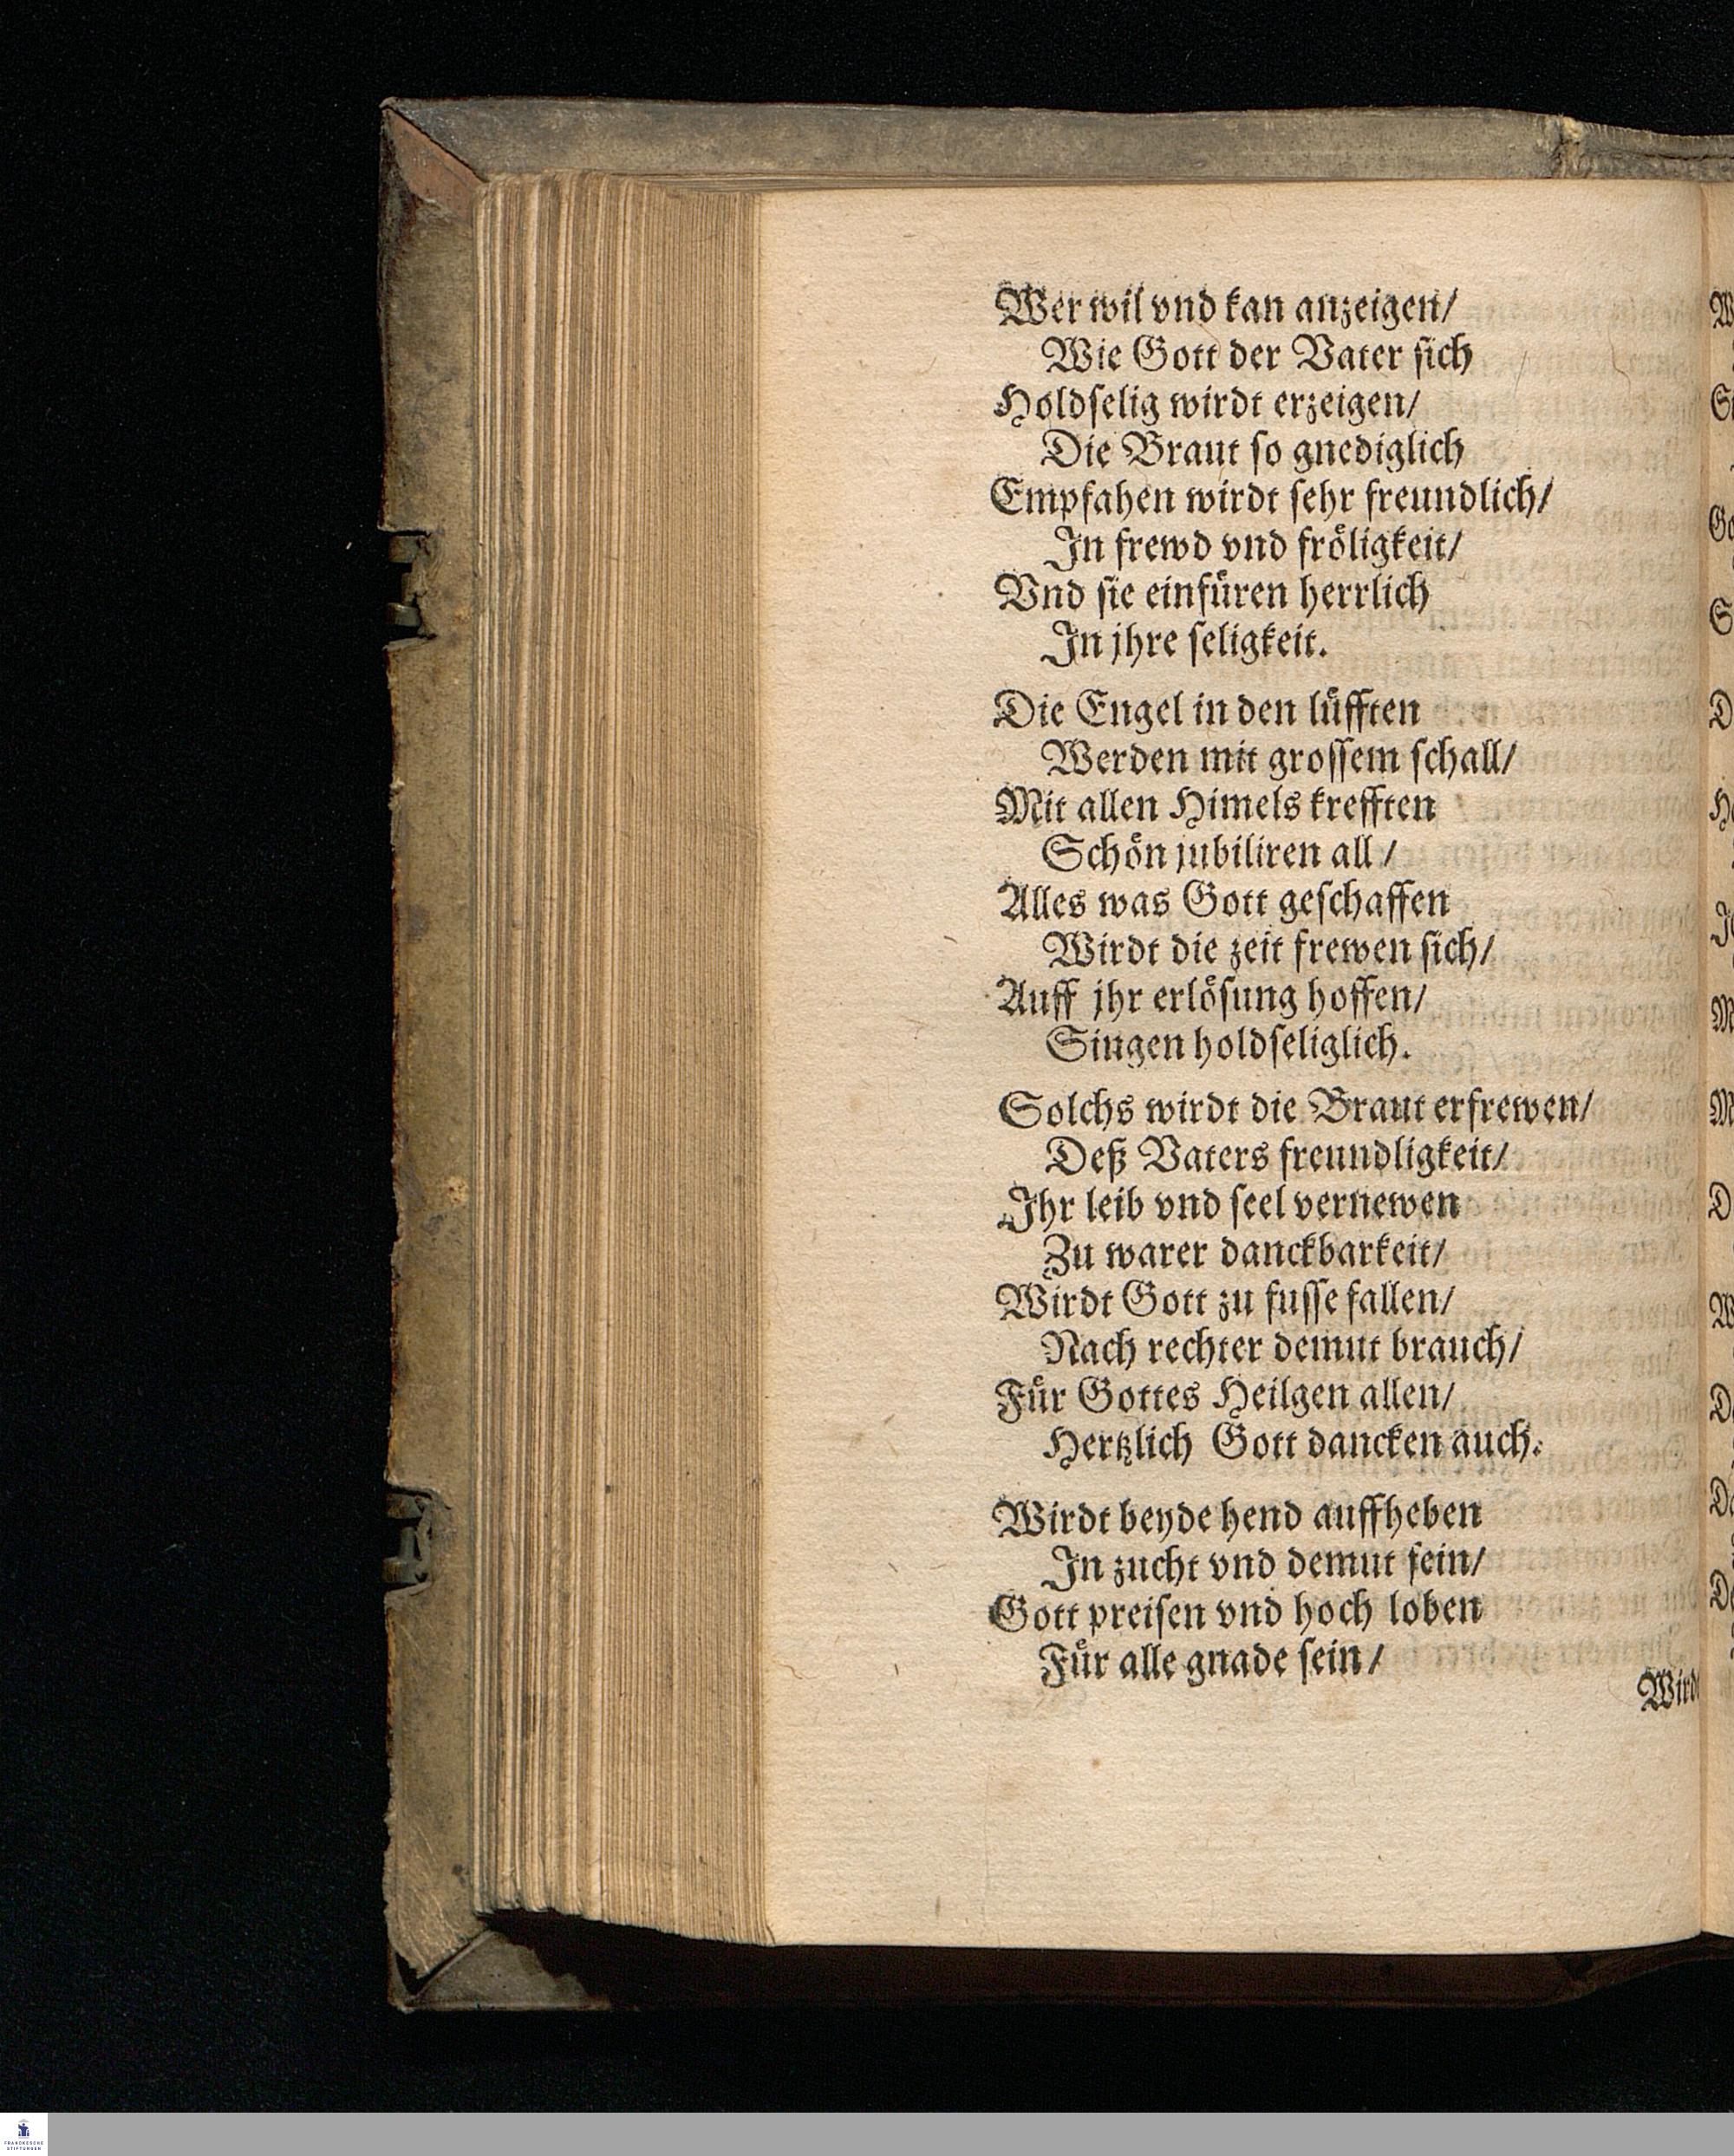 Wer wil vnd kan anzeigen/
Wie Gott der Vater sich
Holdselig wirdt erzeigen/
Die Braut so gnediglich
Empfahen wirdt sehr freundlich/
In frewd vnd fröligkeit/
Vnd sie einfüren herrlich
In jhre seligkeit.
Die Engel in den lüfften
Werden mit grossem schall/
Mit allen Himels krefften
Schön jubiliren all/
Alles was Gott geschaffen
Wirdt die zeit frewen sich/
Auff jhr erlösung hoffen/
Singen holdseliglich.
Solchs wirdt die Braut erfrewen/
Deß Vaters freundligkeit/
Ihr leib vnd seel vernewen
Zu warer danckbarkeit/
Wirdt Gott zu fusse fallen/
Nach rechter demut brauch/
Für Gottes Heilgen allen/
Hertzlich Gott dancken auch.
Wirdt beyde hend auffheben
In zucht vnd demut fein/
Gott preisen vnd hoch loben
Für alle gnade sein/
Wirdt
FRANCKESCHE
STIFTUNGEN